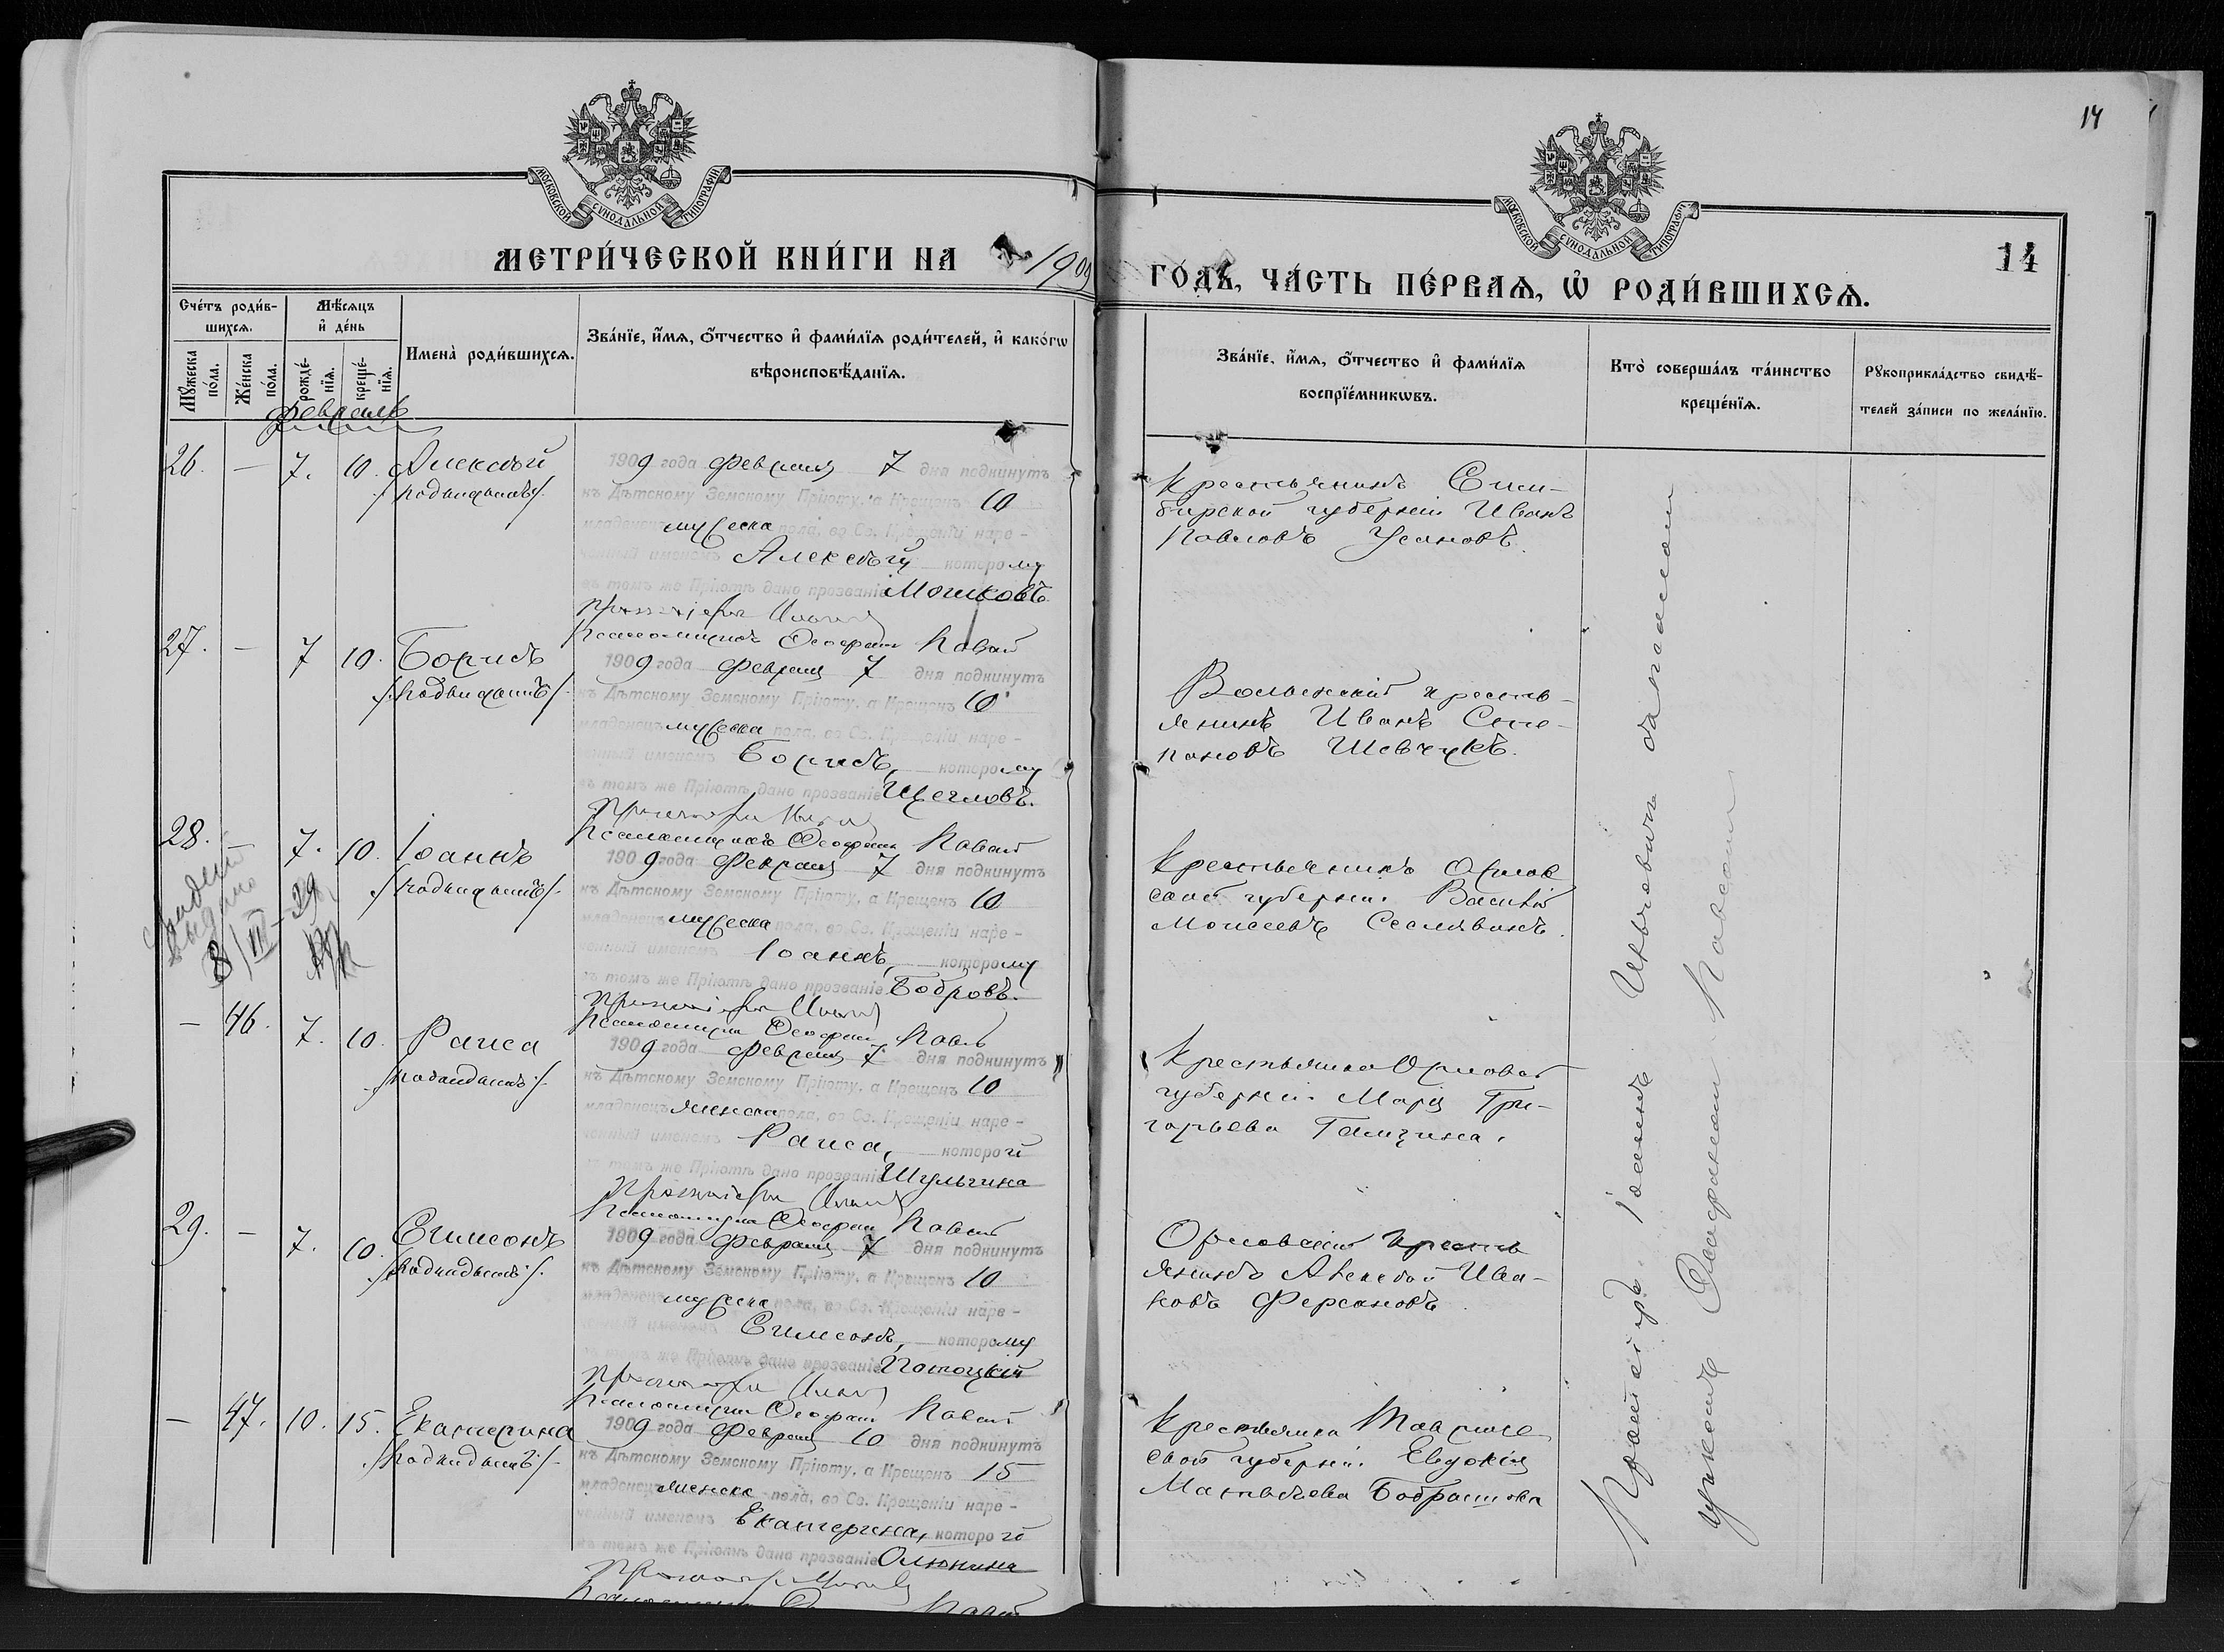 14
МОСКОВСКОЙ СѴНОДАЛЬНОЙ ТИПОГРАФІИ
МОСКОВСКОЙ СѴНОДАЛЬНОЙ ТИПОГРАФІИ
МЕТРИ́ЧЕСКОЙ КНИ́ГИ НА 1909
ГО́ДЪ, ЧА́СТЬ ПЕ́РВАѦ, Ѡ҆ РОДИ́ВШИХСѦ.
14
Сче́тъ роди́в-
шихсѧ.
Мꙋ́жеска
по́ла.
Же́нска
по́ла.
Мѣ́сѧцъ
и҆ де́нь
рожде́-
нїѧ.
креще́-
нїѧ.
Имена̀ роди́вшихсѧ.
Зва́нїе, и҆́мѧ, о҆́тчество и҆ фами́лїѧ роди́телей, и҆ како́гѡ
вѣроисповѣ́данїѧ.
Зва́нїе, и҆́мѧ, о҆́тчество и҆ фами́лїѧ
воспрїе́мникѡвъ.
Кто̀ соверша́лъ та́инство
креще́нїѧ.
Рꙋкоприкла́дство свидѣ́-
телей за́писи по жела́нїю.
Февраль
26. — 7. 10. Алексѣй
/подкидышъ/.
1909 года Февраля 7 дня подкинутъ
къ Дѣтскому Земскому Пріюту, а Крещенъ 10
младенецъ мужеска пола, во Св. Крещеніи наре-
ченный именемъ Алексѣй, которому
въ томъ же Пріютѣ дано прозваніе Мошковъ.
Псаломщикъ
Крестьянинъ Сим-
бирской губерніи Иванъ
Павловъ Усановъ.
27. — 7 10. Борисъ
/подкидышъ/.
1909 года Февраля 7 дня подкинутъ
къ Дѣтскому Земскому Пріюту, а Крещенъ 10
младенецъ мужеска пола, во Св. Крещеніи наре-
ченный именемъ Борисъ, которому
въ томъ же Пріютѣ дано прозваніе Щегловъ.
Псаломщикъ
Волынскій кресть-
янинъ Иванъ Сте-
пановъ Шевчукъ.
28. — 7. 10. Іоаннъ
/подкидышъ/.
1909 года Февраля 7 дня подкинутъ
къ Дѣтскому Земскому Пріюту, а Крещенъ 10
младенецъ мужеска пола, во Св. Крещеніи наре-
ченный именемъ Іоаннъ, которому
въ томъ же Пріютѣ дано прозваніе Бобровъ.
Псаломщикъ
Крестьянинъ Орлов
ской губерніи Василій
Моисеевъ Сеславинъ.
выдано
8/III-29
— 46. 7. 10. Раиса
/подкидышъ/.
1909 года Февраля 7 дня подкинутъ
къ Дѣтскому Земскому Пріюту, а Крещенъ 10
младенецъ женска пола, во Св. Крещеніи наре-
ченный именемъ Раиса, которой
въ томъ же Пріютѣ дано прозваніе Шульгина
Псаломщикъ
Крестьянка Орловской
губерніи Марія Гри-
горьева
29. — 7. 10. Симеонъ
/подкидышъ/.
1909 года Февраля 7 дня подкинутъ
къ Дѣтскому Земскому Пріюту, а Крещенъ 10
младенецъ мужеска пола, во Св. Крещеніи наре-
ченный именемъ Симеонъ, которому
въ томъ же Пріютѣ дано прозваніе Потоцкій
Псаломщикъ
Орловскій кресть
янинъ Алексѣй Ива-
новъ Фирсановъ
— 47. 10. 15. Екатерина
/подкидышъ/.
1909 года Февраля 10 дня подкинутъ
къ Дѣтскому Земскому Пріюту, а Крещенъ 15
младенецъ женска пола, во Св. Крещеніи наре-
ченный именемъ Екатерина, которой
въ томъ же Пріютѣ дано прозваніе
Крестьянка Тавриче
ской губерніи Евдокія
Матвѣева
Іоаннъ